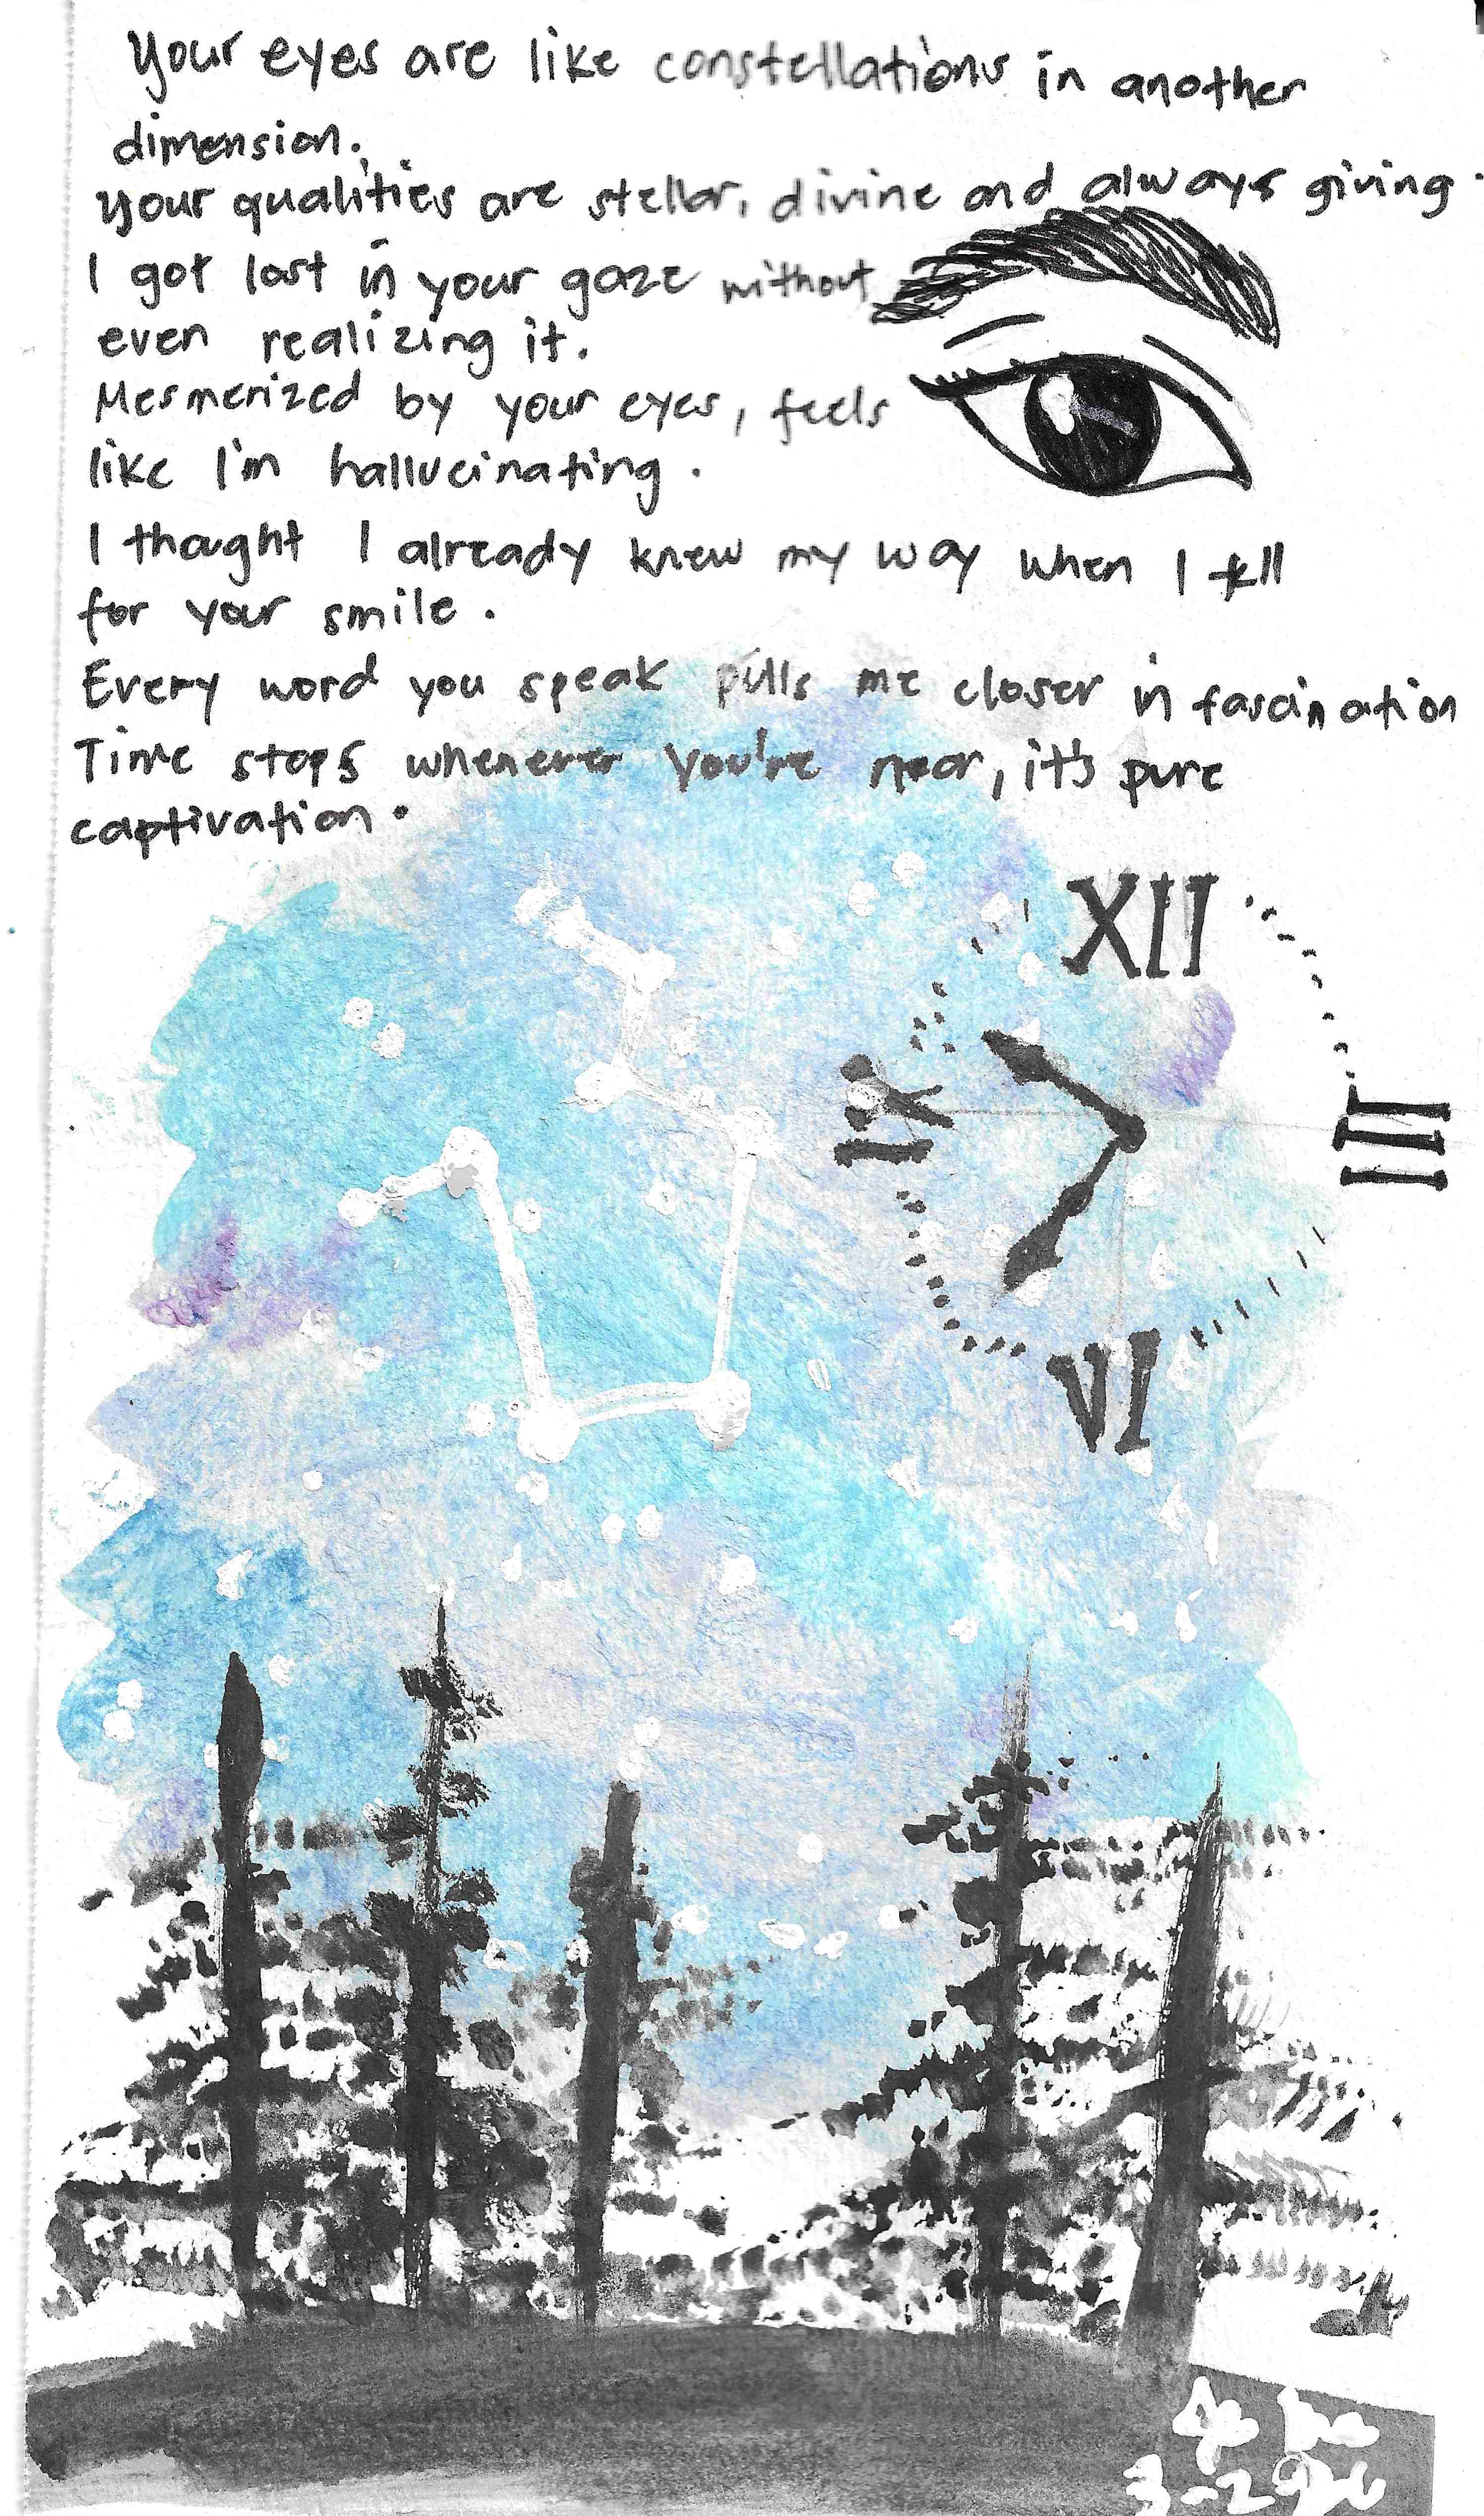 Your eyes are like constellations in another
dimension.
Your qualities are stellar, divine and always giving.
I got lost in your gaze without
even realizing it.
Mesmerized by your eyes, feels
like I'm hallucinating.
I thought I already knew my way when I fell
for your smile.
Every word you speak pulls me closer in fascination
Time stops whenever you're near, it's pure
captivation.
XII
IX
III
VI